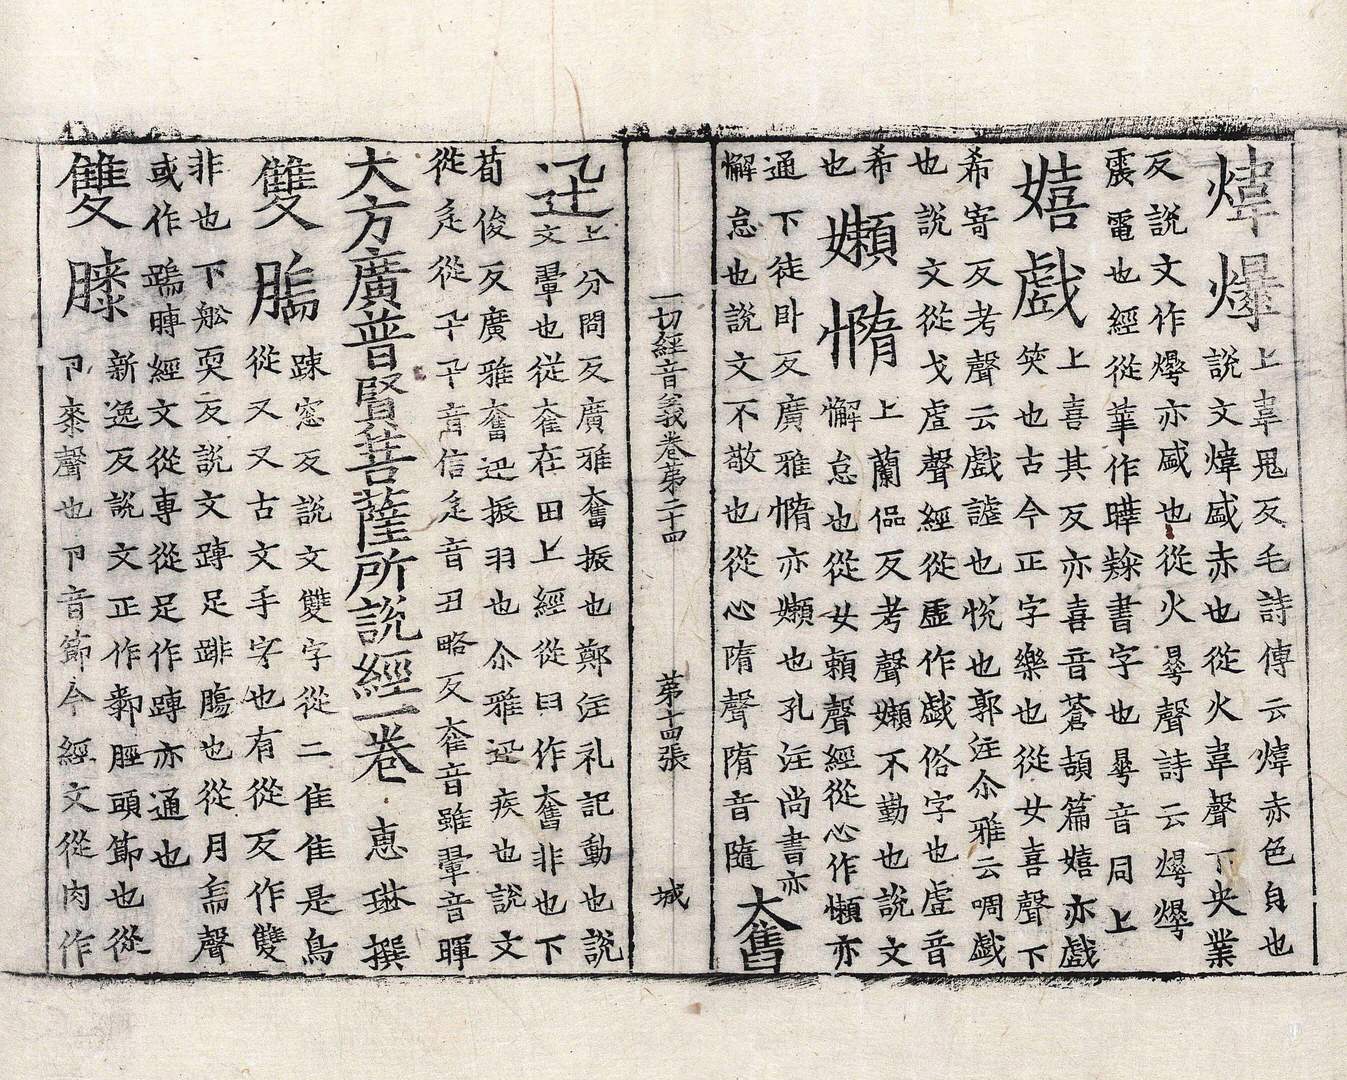 煒爗
上韋鬼反毛詩傳云煒赤色皃也
說文煒盛赤也從火韋聲下央業
反說文作爗亦盛也從火曅聲詩云爗爗
震電也經從華作曄𣤶書字也曅音同上
嬉戲
上喜其反亦喜音蒼頡篇嬉亦戲
笑也古今正字樂也從女喜聲下
希寄反考聲云戲謔也悅也郭注尒雅云啁戲
也說文從戈䖒聲經從虛作戯俗字也䖒音
希
也
嬾惰
上蘭侃反考聲嬾不勤也說文
懈怠也從女賴聲經從心作懶亦
通下徒臥反廣雅惰亦嬾也孔注尚書亦
懈怠也說文不敬也從心隋聲隋音隨
奮
一切經音義卷第二十四 第十四張 城
迅
上分問反廣雅奮振也鄭注礼記動也說
文翬也從奞在田上經從臼作奮非也下
荀俊反廣雅奮迅振羽也尒雅迅疾也說文
從辵從卂卂音信辵音丑略反奞音雖翬音暉
大方廣普賢菩薩所說經一卷 惠琳撰
雙腨
踈窓反說文雙字從二隹隹是鳥
從又又古文手字也有從反作雙
非也下舩耎反說文腨足腓腸也從月耑聲
或作𨄔膞經文從專從足作䠦亦通也
雙膝
新逸反說文正作厀脛頭節也從
卪桼聲也卪音節今經文從肉作